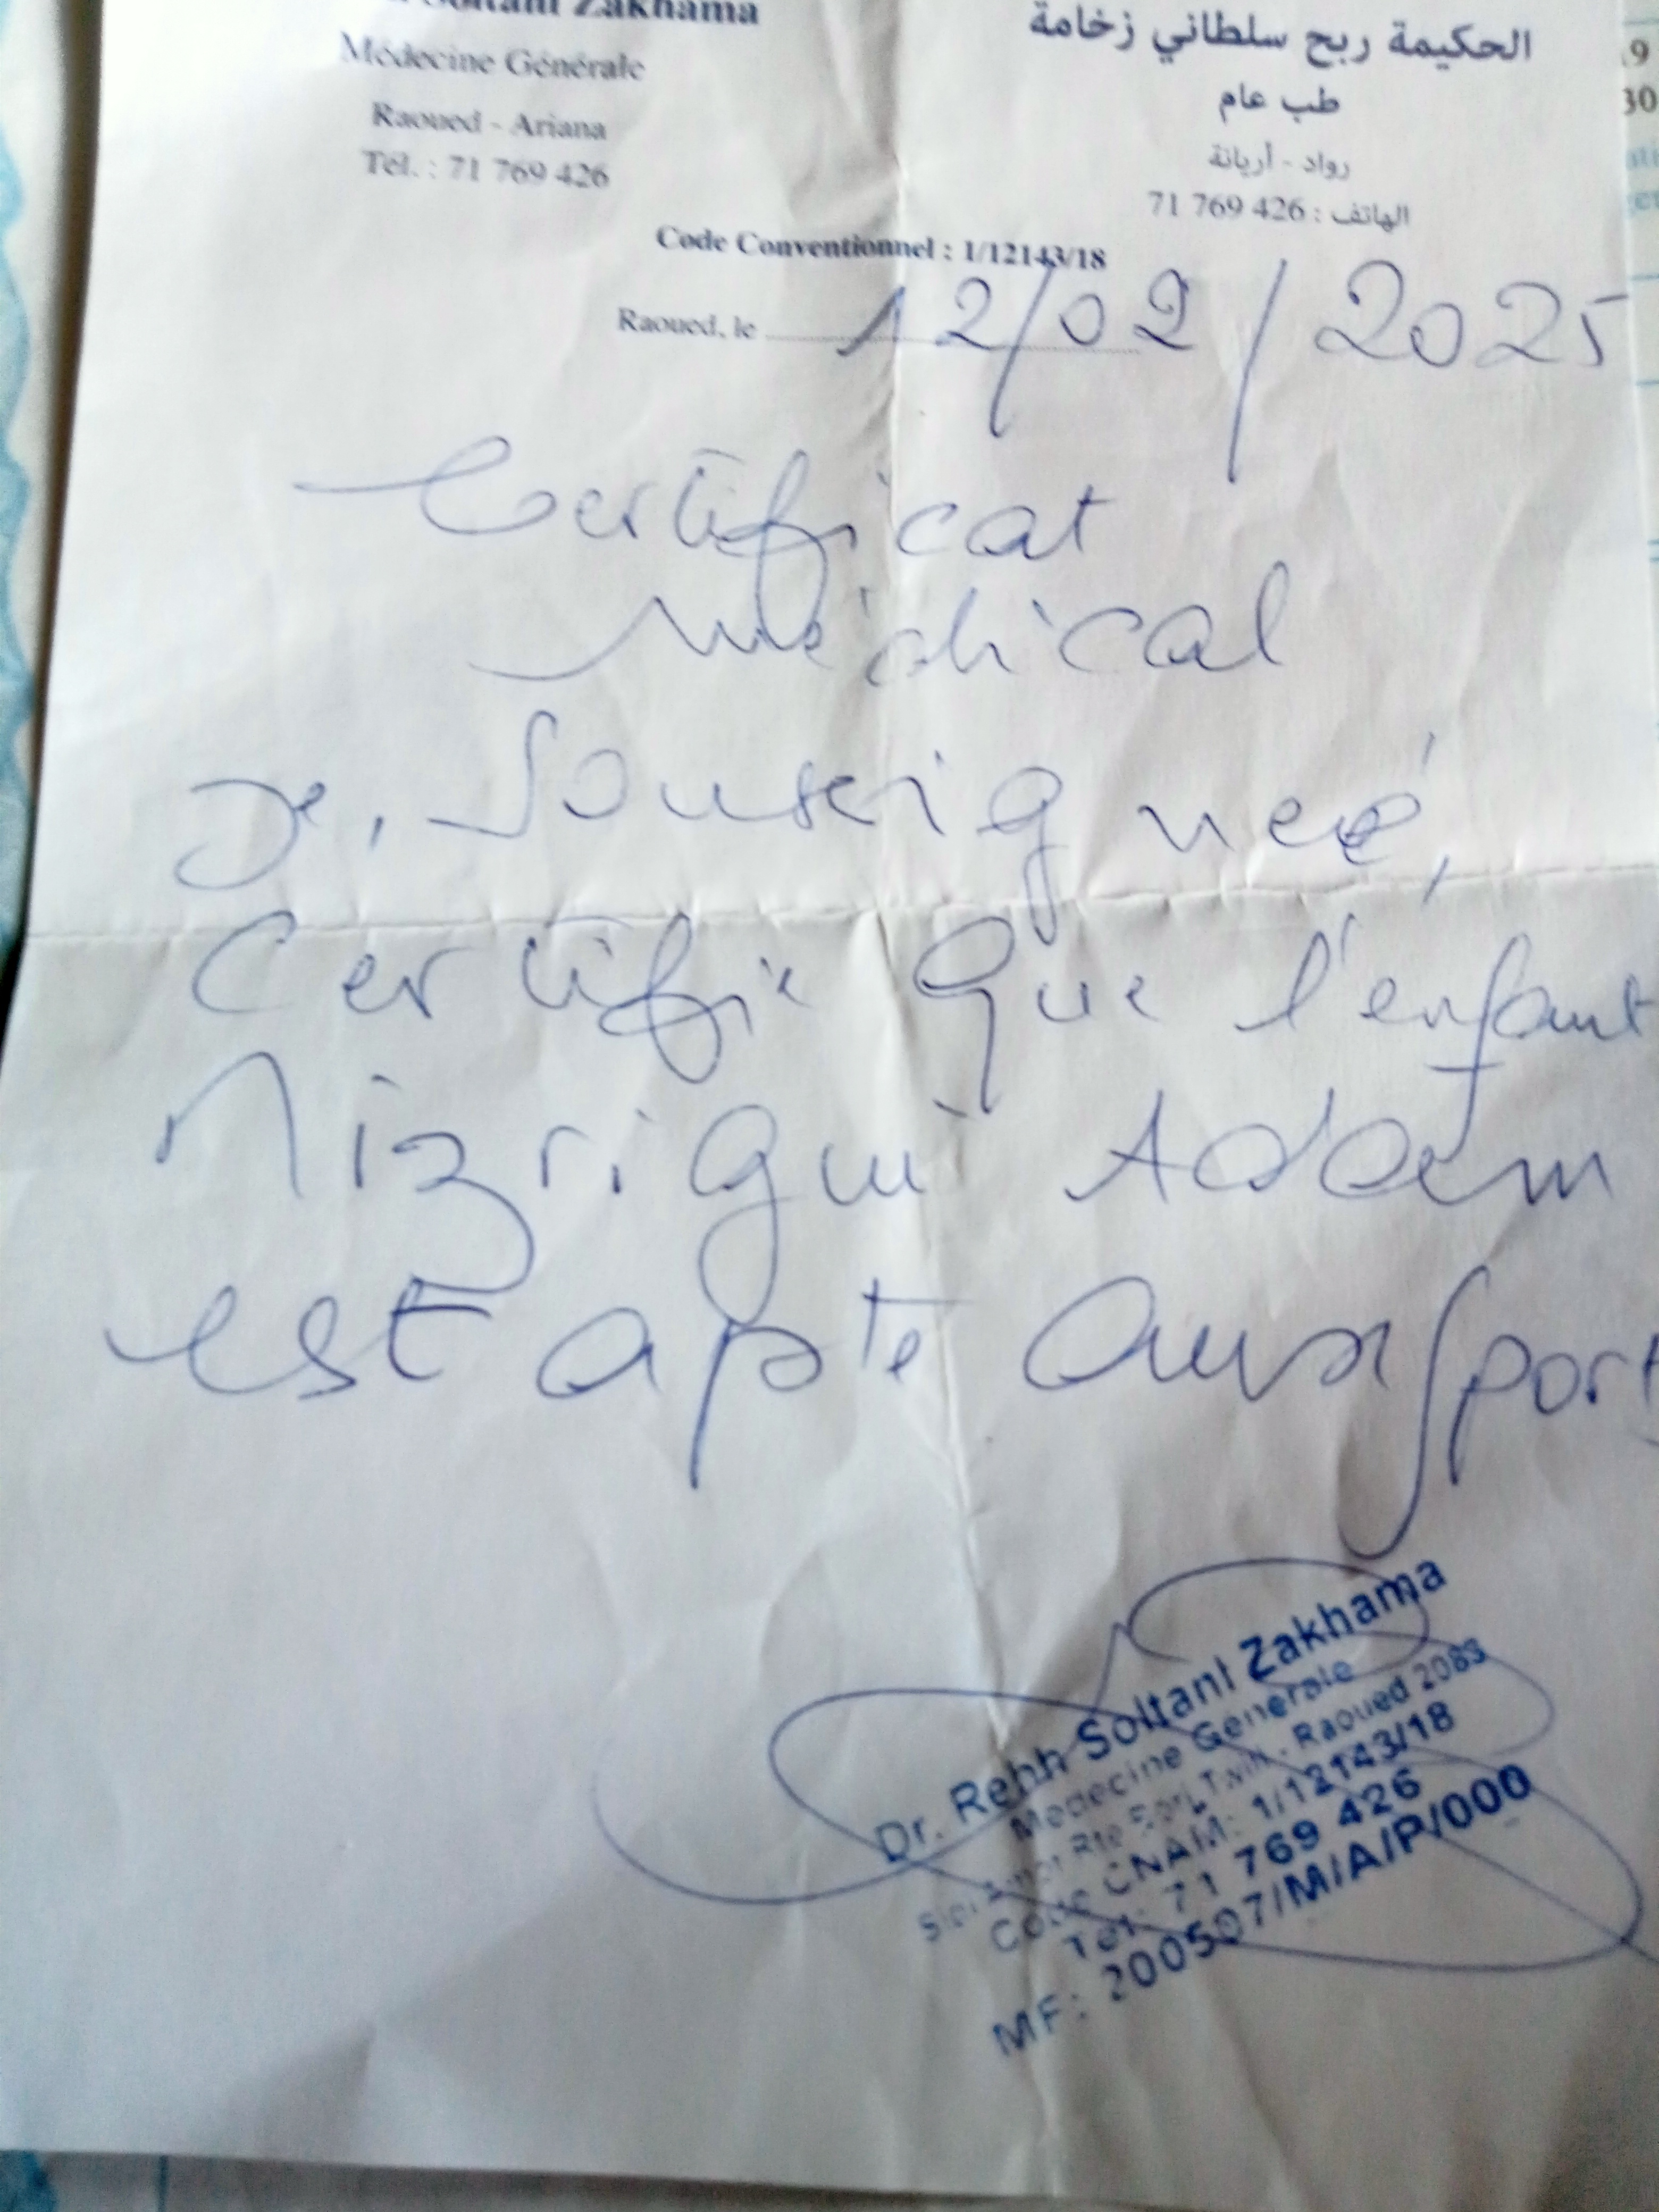 Soltani Zakhama
Médecine Générale
Raoued - Ariana
Tél. : 71 769 426
الحكيمة ربح سلطاني زخامة
طب عام
رواد - أريانة
الهاتف : 426 769 71
Code Conventionnel : 1/12143/18
Raoued, le 12/02/2025
Certificat
Médical
Je, Soussignée,
Certifie que l'enfant
Mizrigui Adam
est apte aux sport
Dr. Rebh Soltani Zakhama
Médecine Générale
Raoued 2083
Code CNAM: 1/12143/18
Tél: 71 769 426
MF: 200507/M/A/P/000